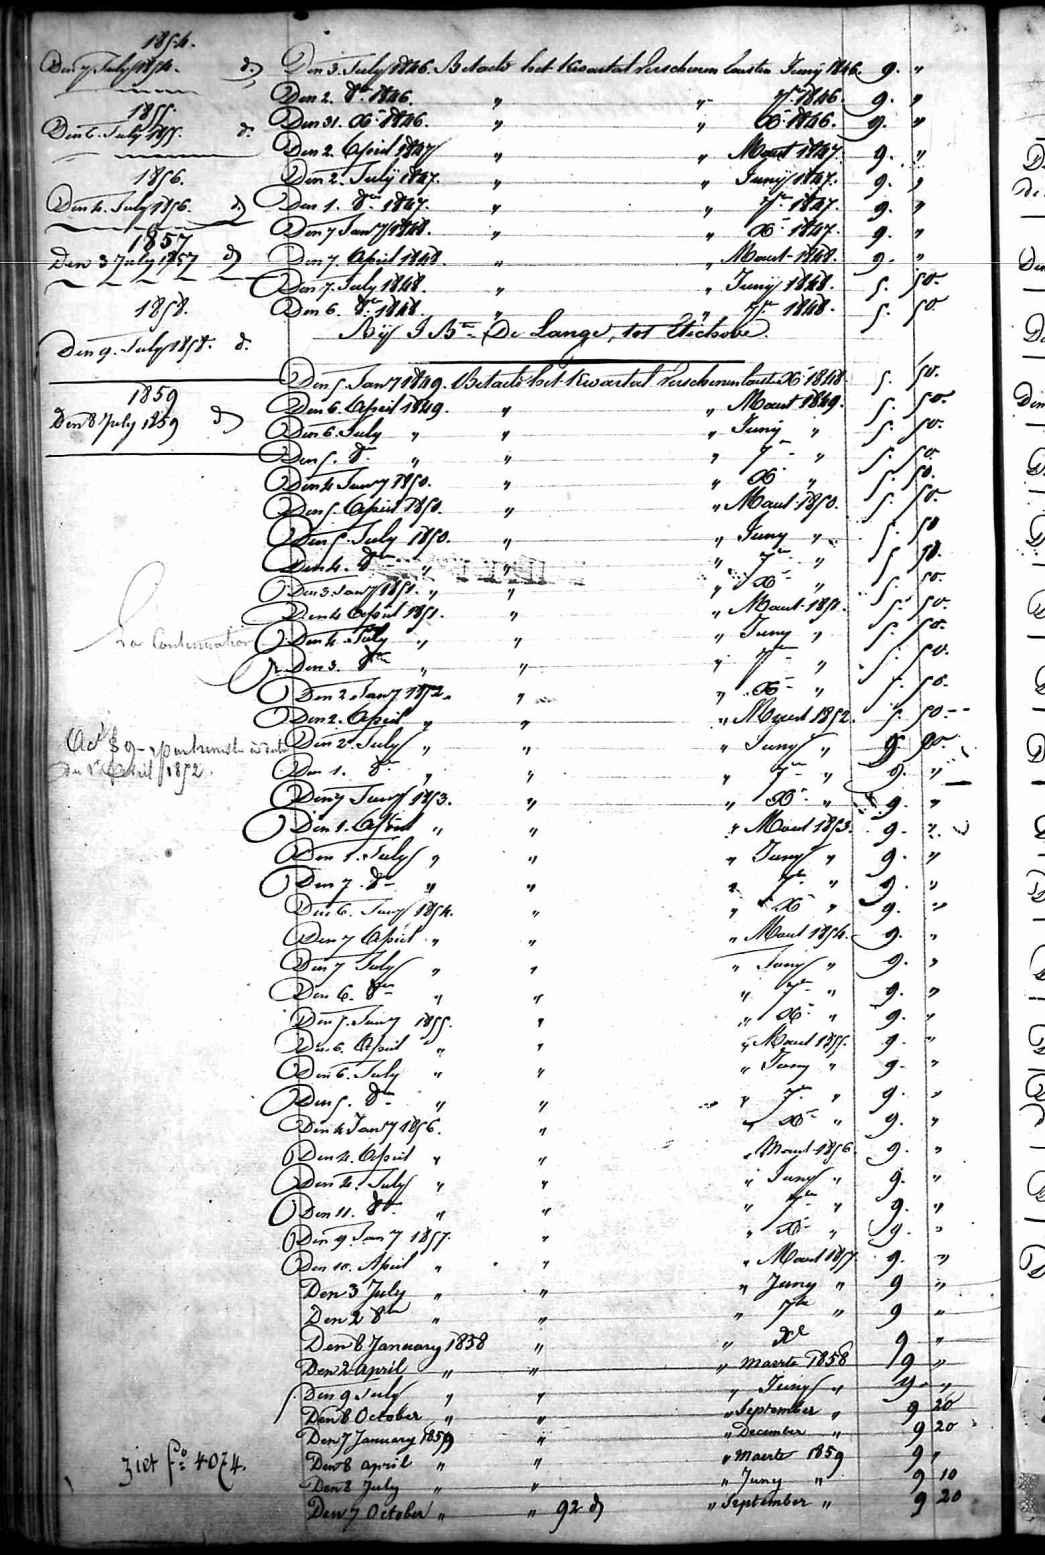 1854.
Den 7 July 1854. d°
1855
Den 6. July 1855. d°
1856.
Den 4. July 1856. d°
1857
Den 3 July 1857 d°
1858.
Den 9. July 1858. d°
1859
Den 8 July 1859 d°
La Continuation
du 1 Avril 1852.
ziet f° 4074.
Den 3. July 1846. Betaelt het Kwartael verschenen laasten Juny 1846. 9. "
Den 2. 8bre 1846. " " 7bre 1846. 9. "
Den 31. Xbre 1846. " " Xbre 1846. 9. "
Den 2. April 1847 " " Maert 1847. 9. "
Den 2. July 1847. " " Juny 1847. 9. "
Den 1. 8bre 1847. " " 7bre 1847. 9. "
Den 7 Jany 1848. " " Xbre 1847. 9. "
Den 7. April 1848. " " Maert 1848. 9. "
Den 7. July 1848. " " Juny 1848. 5. 50.
Den 6. 8bre 1848. " " 7bre 1848. 5. 50
Bij J Bte De Lange, tot Etichove.
Den 5 Jany 1849. Betaelt het Kwartael verschenen laasten Xbre 1848 5. 50.
Den 6. April 1849. " " Maert 1849. 5. 50.
Den 6. July " " " Juny " 5. 50.
Den 5. 8bre " " " 7bre " 5. 50.
Den 4 Jany 1850. " " Xbre " 5. 50.
Den 5. April 1850. " " Maert 1850. 5. 50
Den 5. July 1850. " " Juny " 5. 50
Den 4. 8bre " " " 7bre " 5 50.
Den 3 Jany 1851. " " " Xbre " 5. 50.
Den 4 April 1851. " " Maert 1851. 5. 50.
Den 4. July " " " Juny " 5. 50.
Den 3. 8bre " " " 7bre " 5. 50.
Den 2 Jany 1852. " " Xbre " 5. 50.
Den 2. April " " " Maert 1852. 5. 50.
Den 2. July " " " Juny " 9
Den 1. 8bre " " " 7bre " 9. "
Den 7 Jany 1853. " " Xbre " 9. "
Den 1. April " " " Maert 1853. 9. "
Den 1. July " " " Juny " 9. "
Den 7. 8bre " " " 7bre " 9. "
Den 6. Jany 1854. " " Xbre " 9. "
Den 7 April " " " Maert 1854. 9. "
Den 7 July " " " Juny " 9. "
Den 6. 8bre " " " 7bre " 9. "
Den 5. Jany 1855. " " Xbre " 9. "
Den 6. April " " " Maert 1855. 9. "
Den 6. July " " " Juny " 9. "
Den 5. 8bre " " " 7bre " 9. "
Den 4 Jany 1856. " " Xbre " 9. "
Den 4. April " " " Maert 1856 9. "
Den 4. July " " " Juny " 9. "
Den 11. 8bre " " " 7bre " 9. "
Den 9. Jany 1857. " " Xbre " 9. "
Den 10. April " " " Maert 1857 9. "
Den 3 July " " " Juny " 9 "
Den 2 8bre " " " 7bre " 9 "
Den 8 January 1858 " " Xbre 9 "
Den 2 april " " " maerte 1858 9 "
Den 9 July " " " Juny " 9 "
Den 8 October " " " September " 9 20
Den 7 January 1859 " " December " 9 20
Den 8 april " " " maerte 1859 9 "
Den 8 July " " " Juny " 9 10
Den 7 October " " 92 d° " September " 9 20